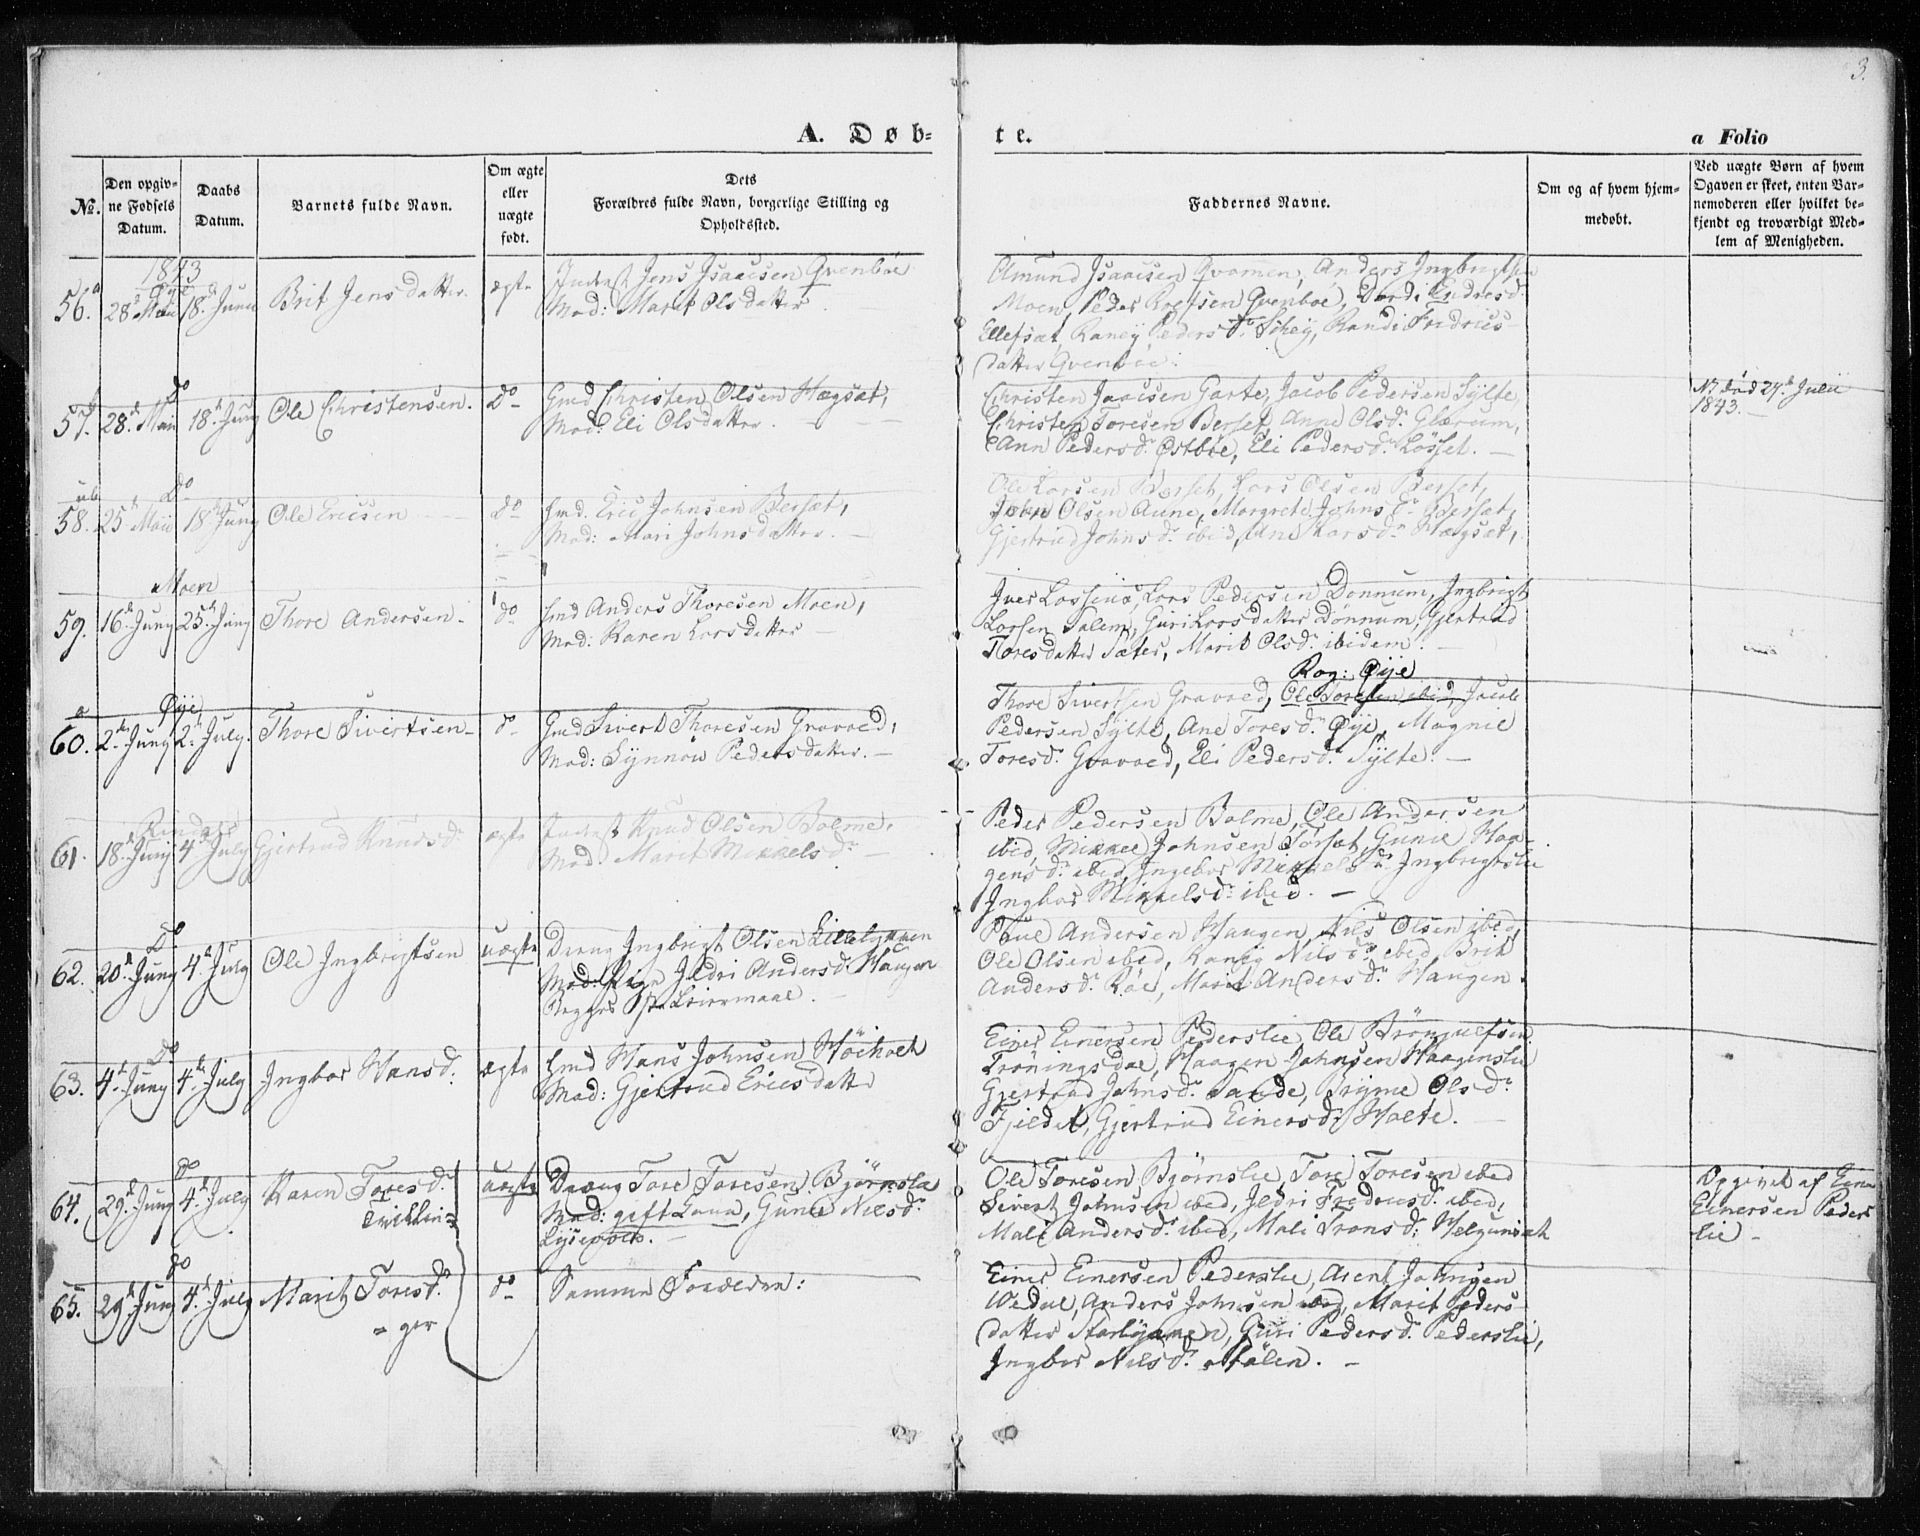 3.
A. Døb-
te.
a Folio
No.
Den opgiv-
ne Fødsels
Datum.
Daabs
Datum.
Barnets fulde Navn.
Om ægte
eller
uægte
født.
Dets
Forældres fulde Navn, borgerlige Stilling og
Opholdssted.
Faddernes Navne.
Om og af hvem hjem-
medøbt.
Ved uægte Børn af hvem
Opgaven er skeet, enten Bar-
nemoderen eller hvilket be-
kjendt og troværdigt Med-
lem af Menigheden.
1843
Øye
56. 28de Mai 18. Juni Brit Jensdatter. ægte
Inderst Jens Isaacsen Qvenboe
Mod: Marit Olsdatter.
Amund Isaacsen Qvamen, Anders Ingbrigtsen
Moen, Peder Roefsen Qvenboe, Dordi Endresd:
Ellefsæt, Raney Pedersdr Schey, Randi Fredrics-
datter Qvenboe.
57. do
28de Mai 18de Juny Ole Christensen. Do
Gmd Christen Olsen Hægsæt,
Mod: Eli Olsdatter.
Christen Isaacsen Garte, Jacob Pedersen Sylte,
Christen Toresen Berset, Anne Olsdr Glærum,
Ann Pedersdr Østboe, Eli Pedersdr Løsset.
død 27de Julii
1843.
58. Do
25de Maii 18de Juny Ole Ericsen do
Hmd. Eric Johnsen Bersæt,
Mod: Mari Johnsdatter.
Ole Larsen Berset, Lars Olsen Berset,
John Olsen Aune, Margrete Johnsdr Bersæt,
Gjertrud Johnsdr ibid, Ane Larsdr Hægsæt,
Moen
59. 16de Juny 25de Juny Thore Andersen do
Hmd Anders Thoresen Moen,
Mod: Karen Larsdatter
Iver Lossius, Lars Pedersen Dønnum, Ingbrigt
Larsen Salem, Guri Larsdatter Dønnum, Gjertrud
Toresdatter Sæter, Marit Olsdr ibidem.
Øye
60. 2den Juny 2. July. Thore Sivertsen do
Gmd Sivert Thoresen Gravaed,
Mod: Synnøv Pedersdatter.
Rog: Øije
Thore Sivertsen Gravaed, Ole Toresen ibid, Jacob
Pedersen Sylte, Ane Toresdr Øije, Magnil
Toresdr Gravaed, Eli Pedersdr Sylte.
Rindal
61. 18de Juny 4de July Gjertrud Knudsdr ægte
Inderst Knud Olsen Bolme,
Mod: Marit Mikkelsdr
Peder Pedersen Bolme, Ole Andersen
ibid, Mikkel Johnsen Torset, Gunil Haa-
gensdr ibid, Ingebor Mikkelsdr Ingbrigtslie
Ingbor Mikkelsdr ibid.
62. Do
20de Juny 4de July Ole Ingbrigtsen uægte
Dreng Ingbrigt Olsen Lillelykken
Mod: Pige Ildri Andersdr Haugen
Begges 1ste Leiermaal.
Poul Andersen Haugen, Nils Olsen ibid,
Ole Olsen ibid, Raney Nilsdr ibid, Brit
Andersdr Røe, Marit Andersdr Haugen.
63. Do
4de Juny 4de July Ingbor Hansdr ægte
Hmd Hans Johnsen Höiholt
Mod: Gjertrud Ericsdatter
Einer Einersen Pederslie, Ole Brönjulfsen
Trøningsdal, Haagen Johnsen Haagenslie
Gjertrud Johnsdr Sande, Brynie Olsdr
Fjeldet, Gjertrud Einersdr Holte.
64. do
29de Juny 4de July Karen Toresdr
Tvillin= uægte
Dreng Tore Toresen Bjørnslie
Mod: gift Kone, Gunil Nilsdr
Lysevold.
Ole Toresen Bjørnslie, Tore Toresen ibid
Sivert Johnsen ibid, Ildri Fredricsdr ibid,
Mali Andersdr ibid, Mali Tronsdr Helgumsæt
Opgivet af Einer
Einersen Peders
lie
65. do
29de Juny 4de July Marit Toresdr
=ger do
Samme Forældre:
Einer Einersen Pederslie, Arent Johnsen
Wedul, Anders Johnsen ibid, Marit Peders-
datter Storlykken, Guri Pedersdr Pederslie,
Ingbor Nilsdr Mølen.